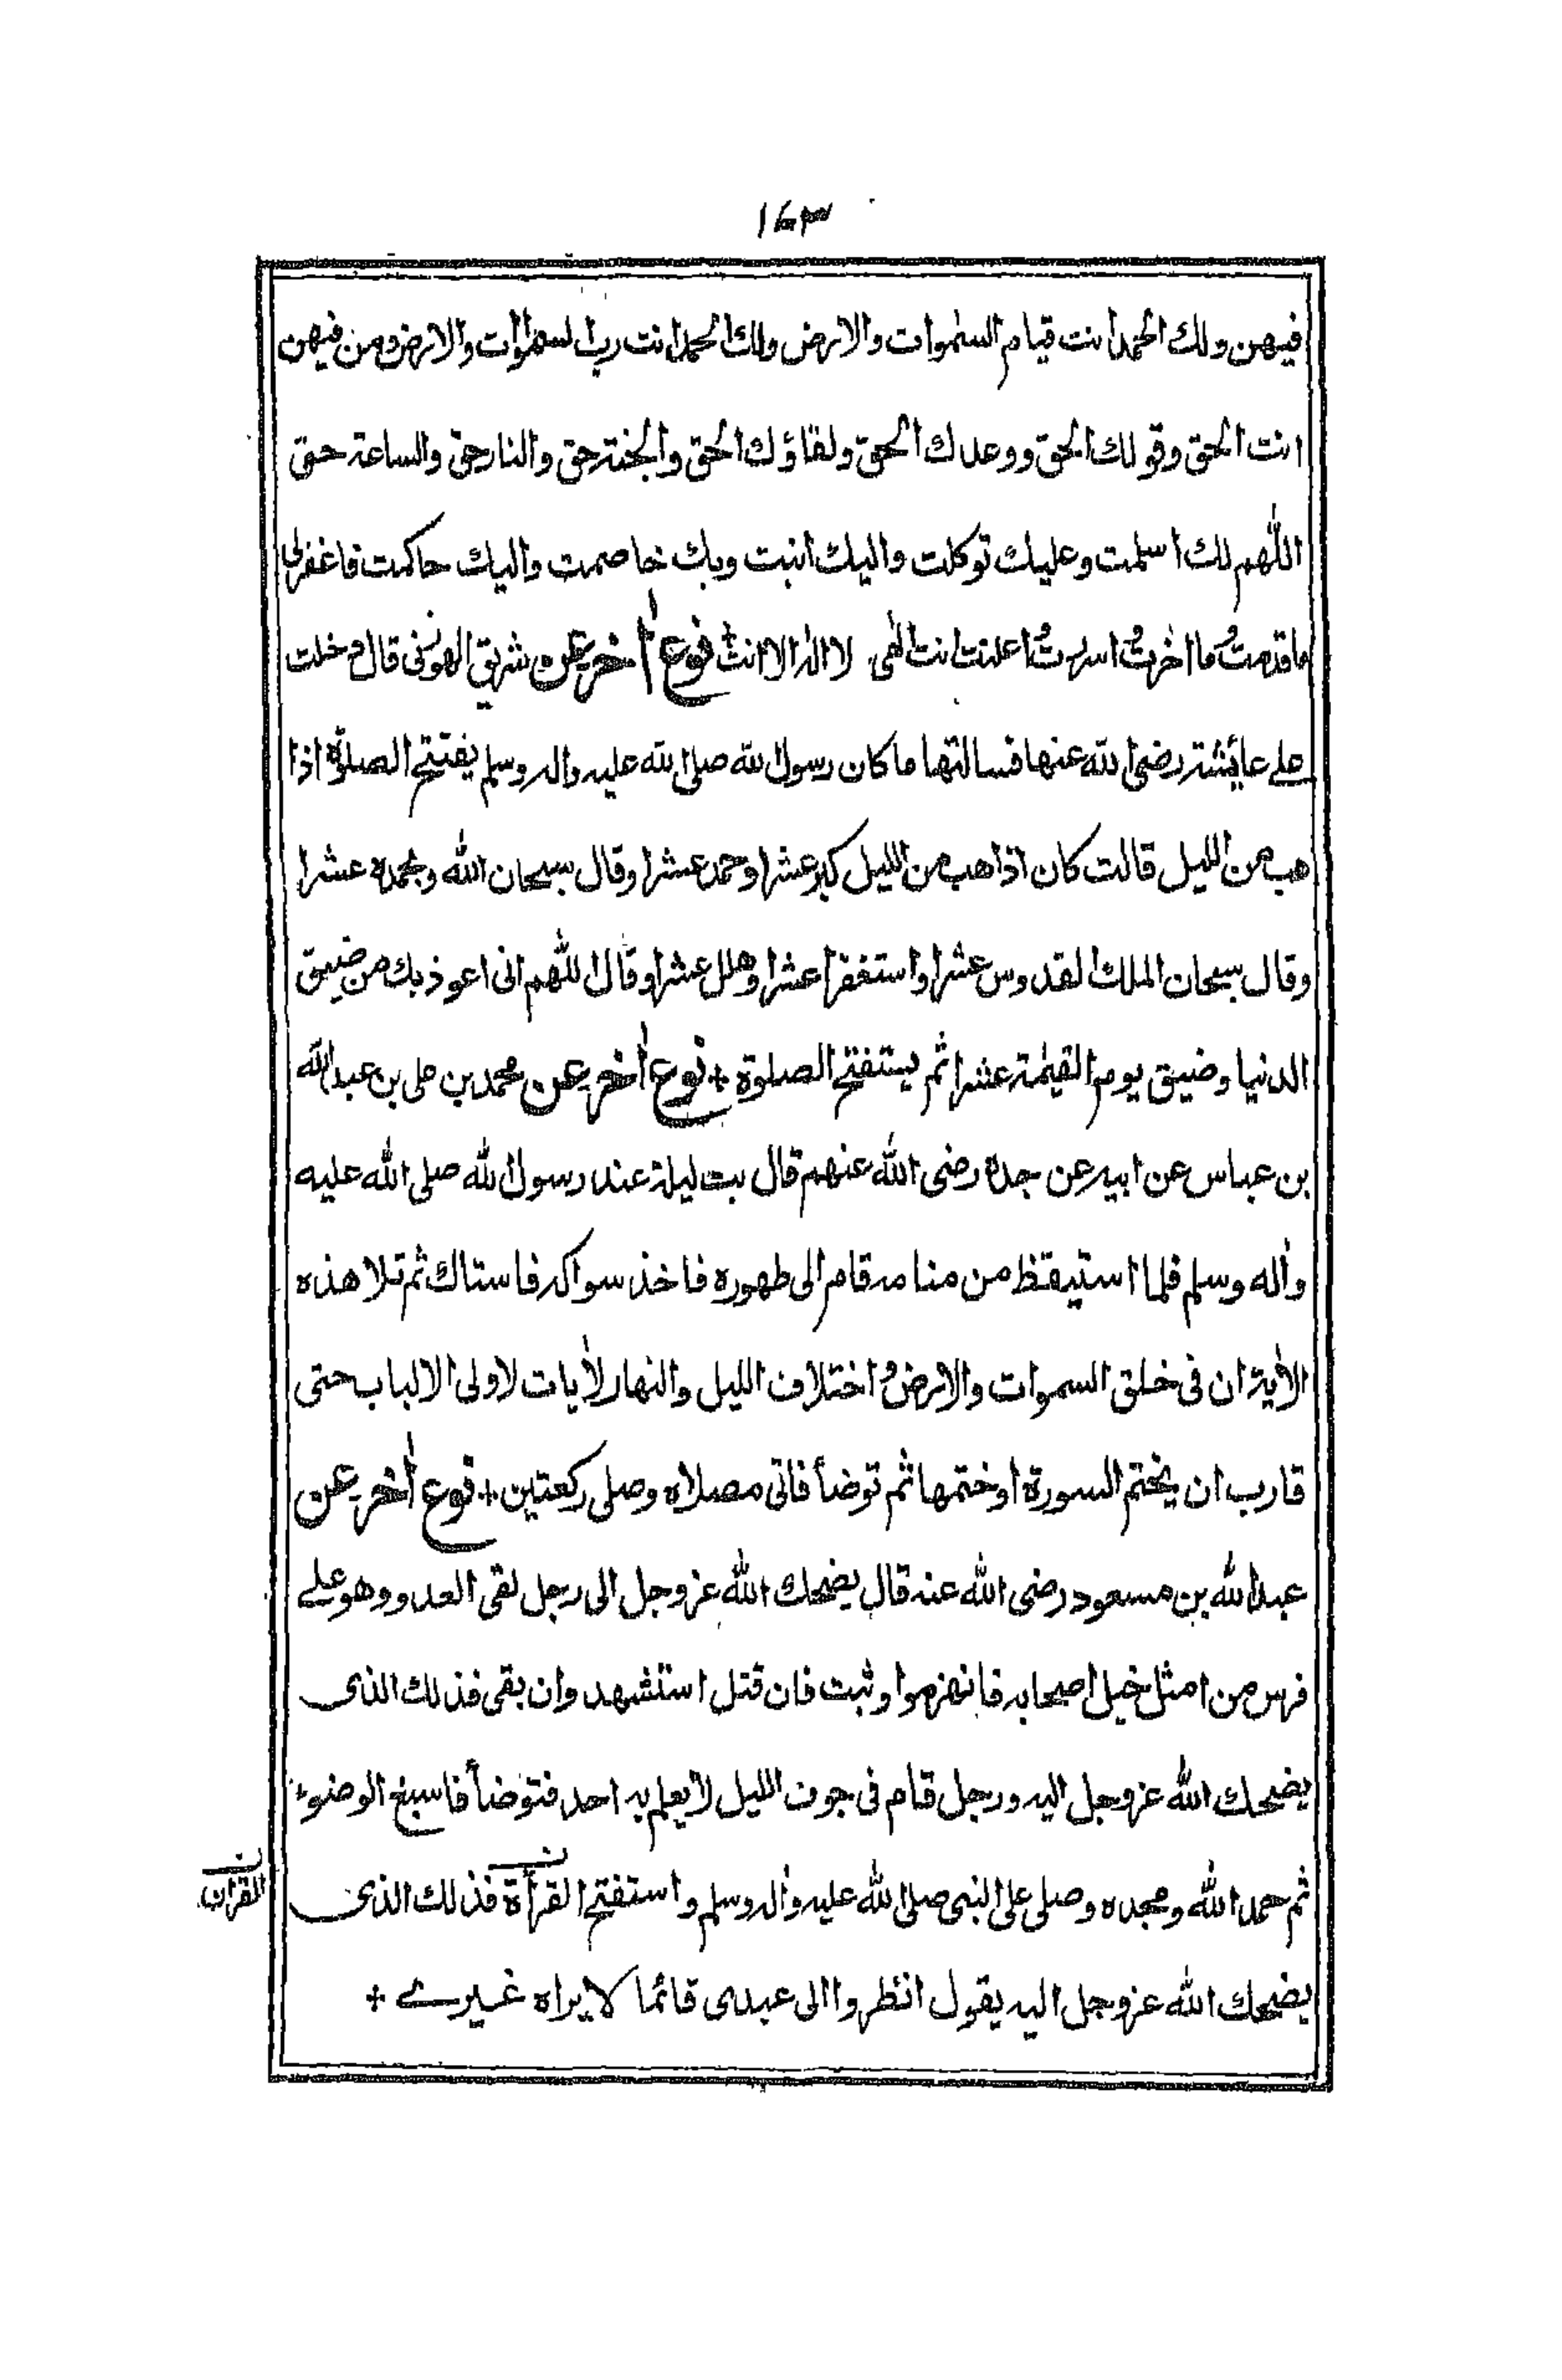 ١٦٣
فيهن ولك الحمد انت قيام السمٰوات والارض ولك الحمد انت رب السمٰوات والارض ومن فيهن
انت الحق وقولك الحق ووعدك الحق ولقاؤك الحق والجنة حق والنار حق والساعة حق
اللّٰهم لك اسلمت وعليك توكلت واليك انبت وبك خاصمت واليك حاكمت فاغفرلى
ما قدمت وما اخرت واسررت واعلنت انت الٰهى لا اله الا انت + نوع اٰخر عن شريق الهوزنى قال دخلت
علے عائشة رضى الله عنها فسالتها ما كان رسول الله صلى الله عليه واله وسلم يفتتح الصلوٰة اذا
هب من الليل قالت كان اذا هب من الليل كبر عشرا وحمد عشرا وقال سبحان الله وبحمده عشرا
وقال سبحان الملك القدوس عشرا واستغفر عشرا وهلل عشرا وقال اللّٰهم انى اعوذ بك من ضيق
الدنيا وضيق يوم القيٰمة عشرا ثم يستفتح الصلوة + نوع اٰخر عن محمد بن على بن عبد الله
بن عباس عن ابيه عن جده رضى الله عنهم قال بت ليلة عند رسول الله صلى الله عليه
واٰله وسلم فلما استيقظ من منامه قام الى طهوره فاخذ سواكه فاستاك ثم تلا هذه
الاٰية ان فى خلق السموات والارض واختلاف الليل والنهار لاٰيات لاولى الالباب حتى
قارب ان يختم السورة او ختمها ثم توضأ فاتى مصلاه وصلى ركعتين + نوع اٰخر عن
عبد الله بن مسعود رضى الله عنه قال يضحك الله عزوجل الى رجل لقى العدو وهو علے
فرس من امثل خيل اصحابه فانهزموا وثبت فان قتل استشهد وان بقى فذلك الذى
يضحك الله عزوجل اليه ورجل قام فى جوف الليل لا يعلم به احد فتوضأ فاسبغ الوضوء
ثم حمد الله ومجده وصلى على النبى صلى الله عليه واٰله وسلم واستفتح القرأة فذلك الذى
القران
يضحك الله عزوجل اليه يقول انظروا الى عبدى قائما لا يراه غيرے +